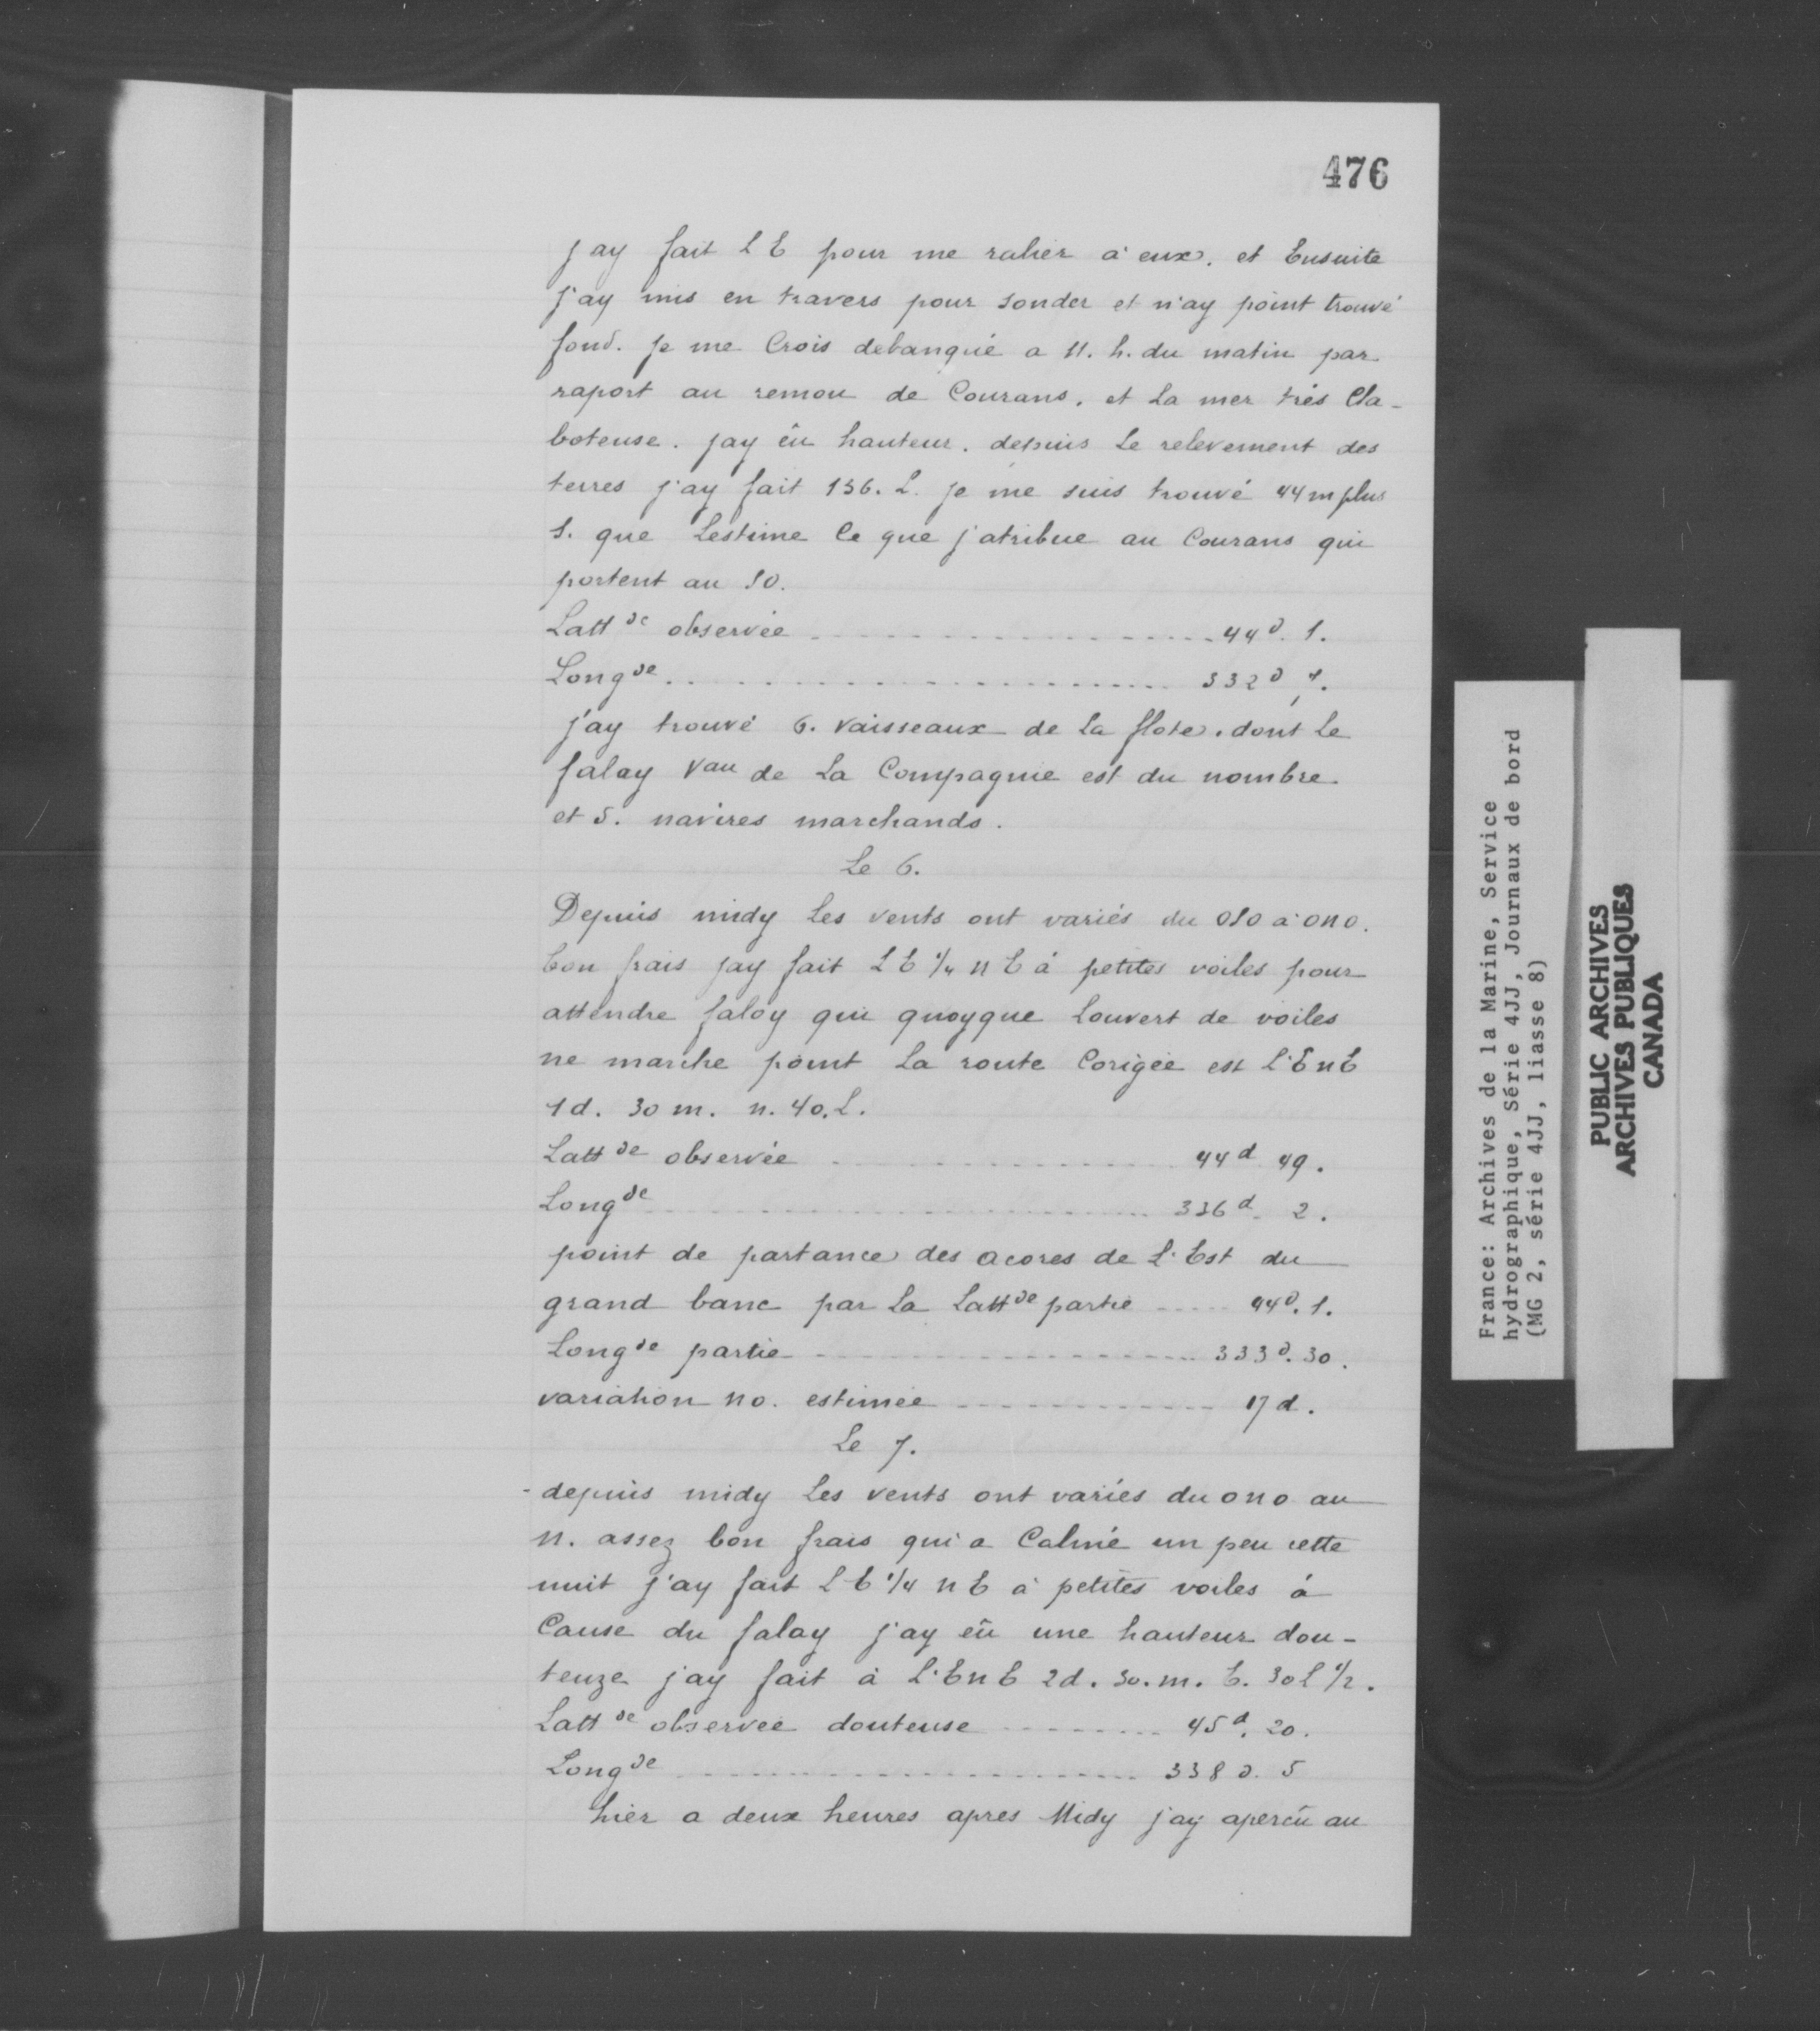 476
jay fait L E pour me ralier à eux. et Ensuite
j'ay mis en travers pour sonder et n'ay point trouvé
fond. Je me Crois debanqué a 11. h. du matin par
raport au remou de Courans. et La mer très Cla-
boteuse. jay êu hauteur. depuis Le relevement des
terres j'ay fait 136. L. je me suis trouvé 44 m plus
S. que Lestime Ce que j'atribue au Courans qui
portent au SO.
Latt de observée 44 d. 1.
Long de 332 d 7.
j'ay trouvé 6. vaisseaux de La flote. dont Le
falay Vau de La Compagnie est du nombre
et 5. navires marchands.
Le 6.
Depuis midy Les vents ont variés du OSO à ONO.
bon frais jay fait L E 1/4 N E à petites voiles pour
attendre faloy qui quoyque Couvert de voiles
ne marche point La route Corigée est L'E N E
1 d. 30 m. n. 40. L.
Latt de observée 44 d 49.
Long de 336 d. 2.
point de partance des acores de L'Est du
grand banc par La Latt de partie 44 d. 1.
Long de partie 333 d. 30.
variation no. estimée 17 d.
Le 7.
depuis midy Les vents ont variés du ono au
N. assez bon frais qui a Calmé un peu cette
nuit j'ay fait L E 1/4 N E à petites voiles à
Cause du falay j'ay eû une hauteur dou-
teuze j'ay fait à L'E N E 2 d. 30. m. E. 30 L 1/2.
Latt de observée douteuse 45 d. 20.
Long de 338 d. 5
hier a deux heures apres Midy j'ay apercû au
France: Archives de la Marine, Service
hydrographique, Série 4JJ, Journaux de bord
(MG 2, série 4JJ, liasse 8)
PUBLIC ARCHIVES
ARCHIVES PUBLIQUES
CANADA